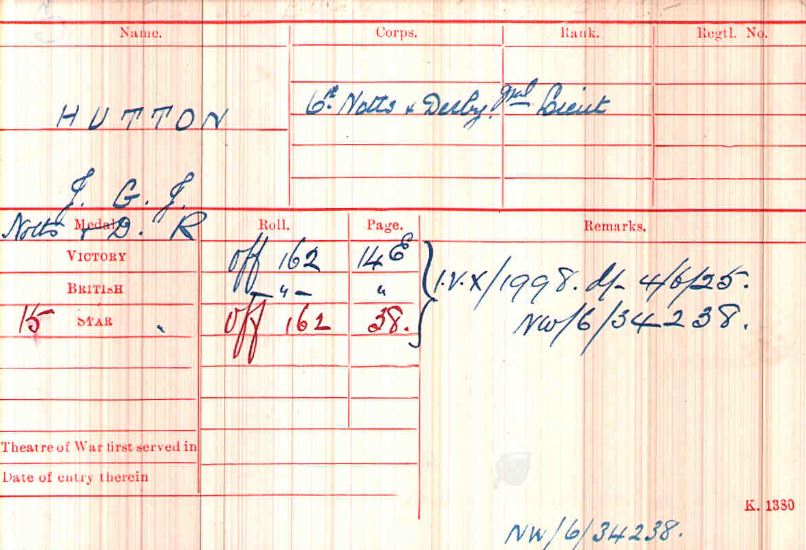 Name. Corps. Rank. Regtl. No.
HUTTON 6th Notts & Derby. Lieut
J. G. J.
Notts & D. R
Medal Roll. Page. Remarks.
VICTORY Off 162 14E
BRITISH -"- " I.V.X/1998. d/- 4/6/25.
15 STAR " Off 162 38. NW/6/34238.
Theatre of War first served in
Date of entry therein
K. 1380
NW/6/34238.